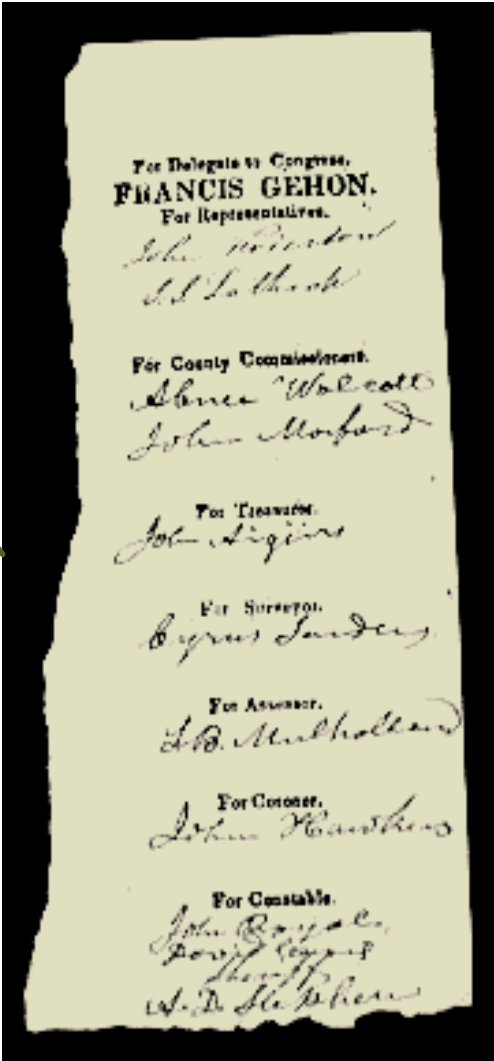 For Delegate to Congress,
FRANCIS GEHON.
For Representatives.
John
For County Commissioners.
Abner Wolcott
John Morford
For Treasurer.
John
For Surveyor.
Cyrus Sanders
For Assessor.
L.B. Mulholland
For Coroner.
John Hawkins
For Constable.
John
David
Sheriff
A. D. Stephen